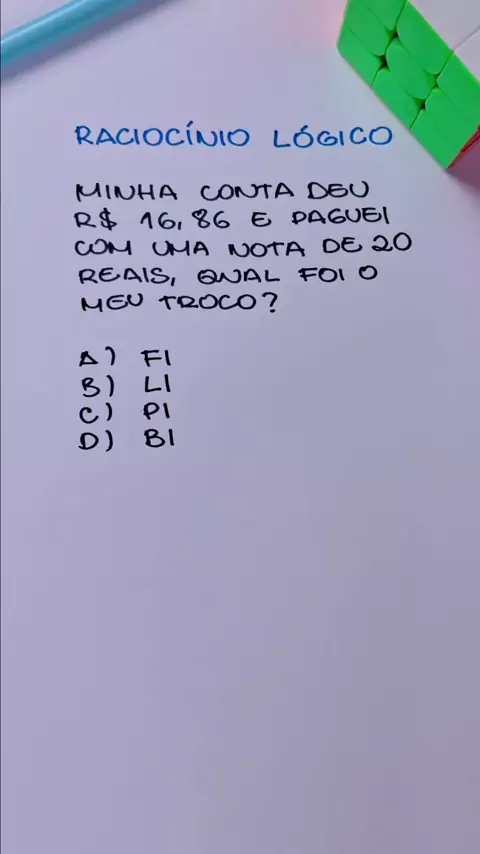 RACIOCÍNIO LÓGICO
MINHA CONTA DEU
R$ 16,86 E PAGUEI
COM UMA NOTA DE 20
REAIS, QUAL FOI O
MEU TROCO?
A) FI
B) LI
C) PI
D) BI